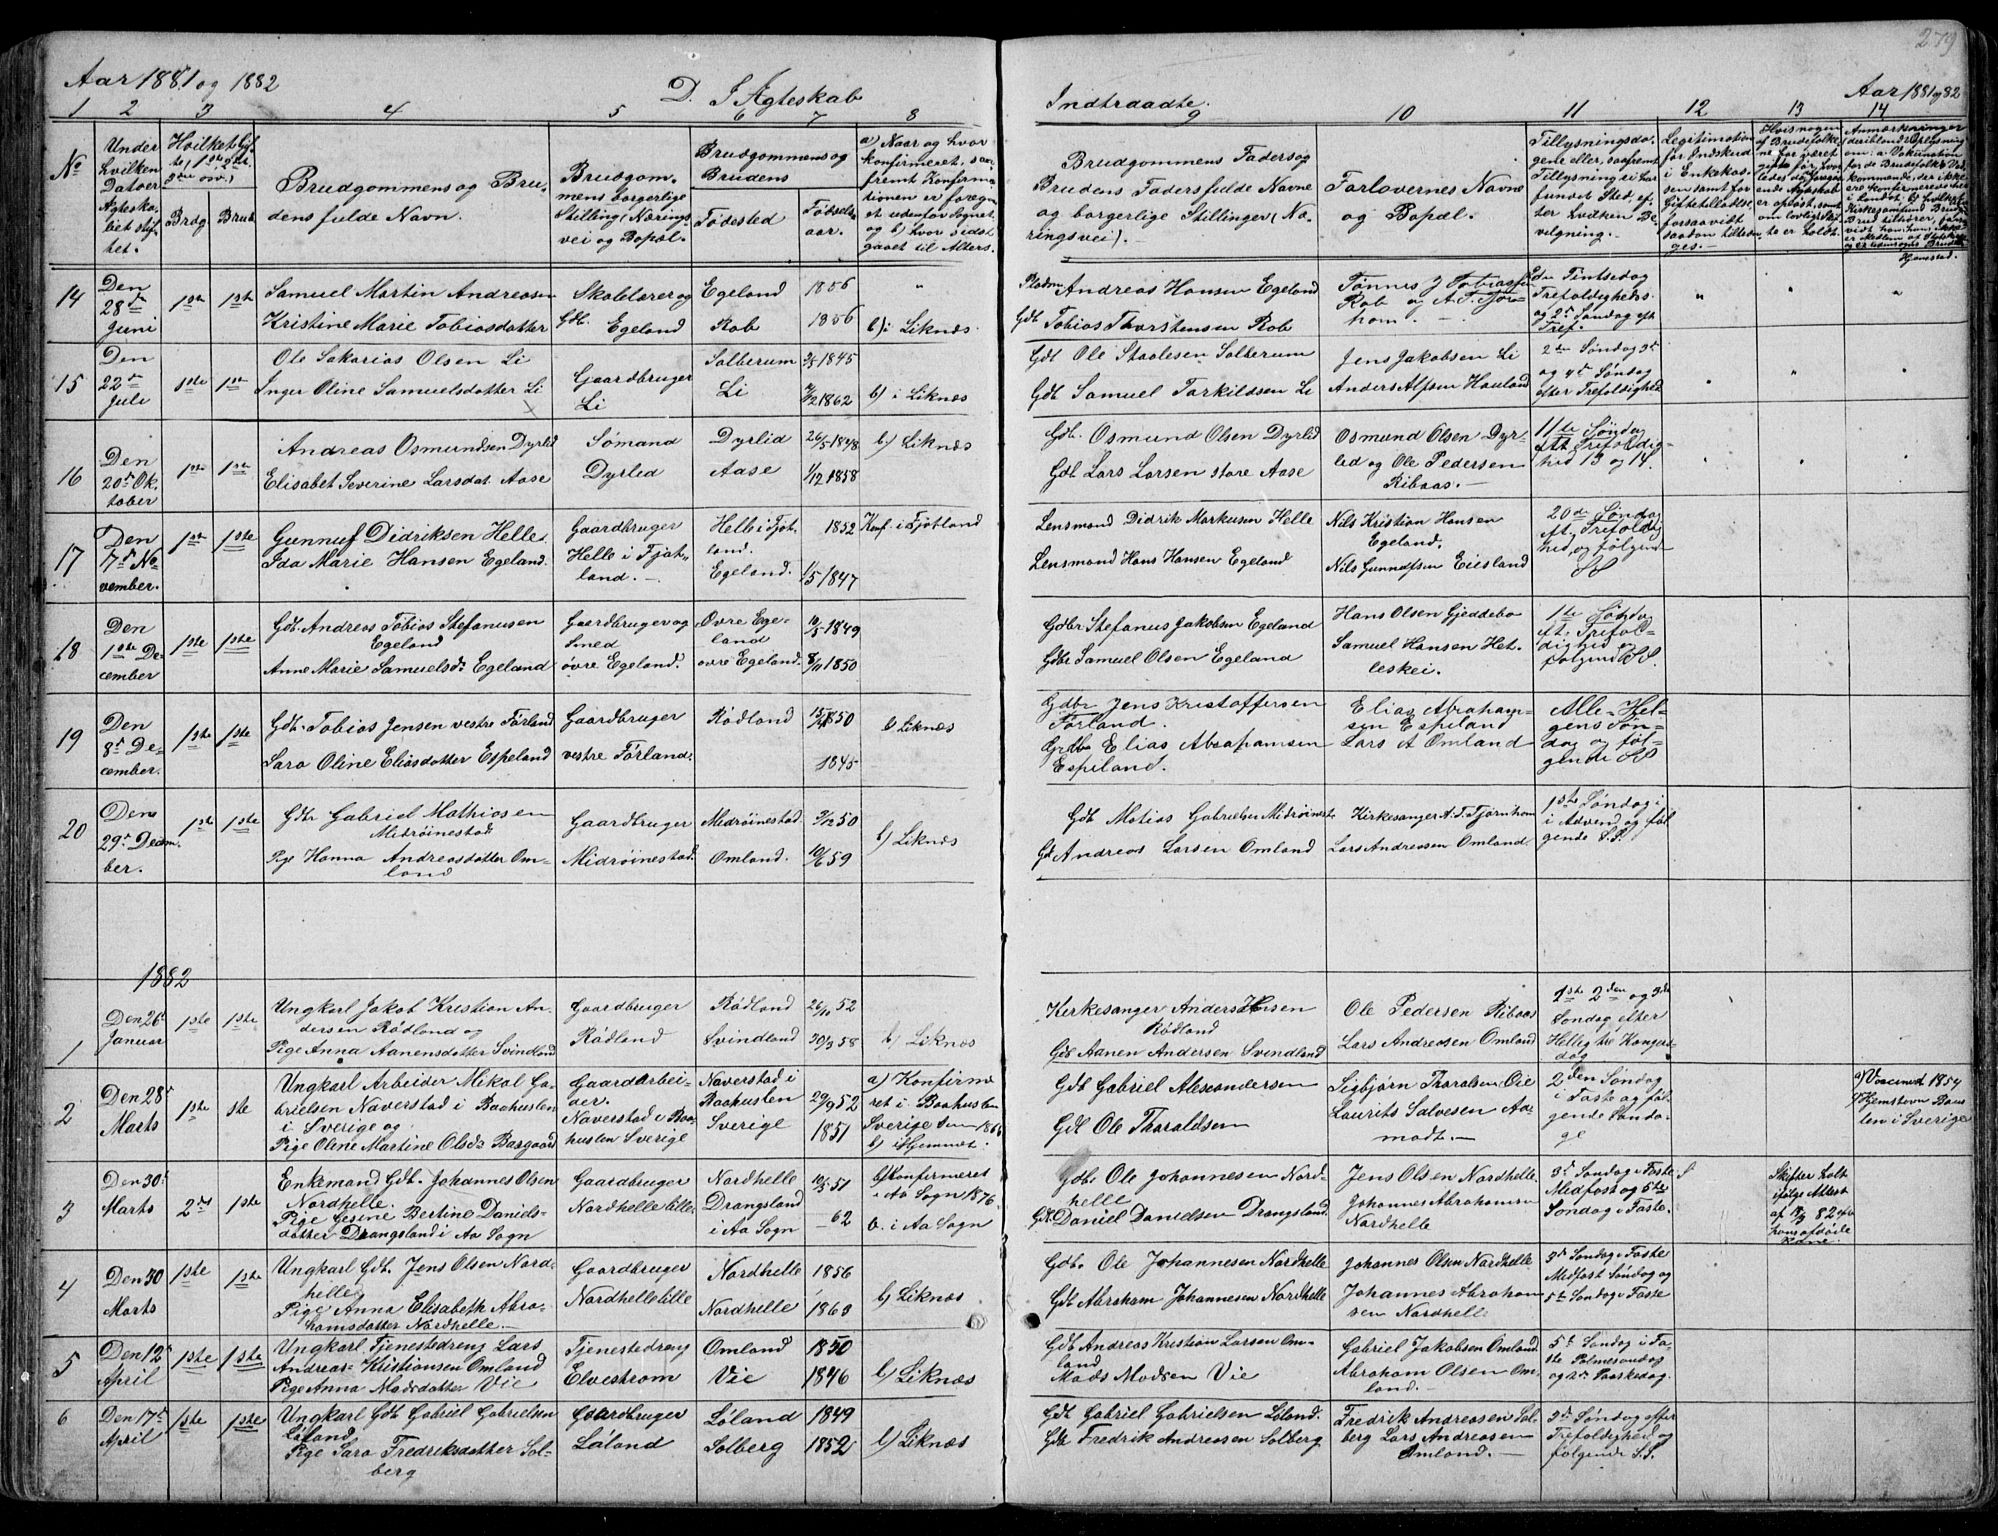 279
Aar 1881 og 1882
D. I Ægteskab
Indtraadte.
Aar 1881 og 82
1 2 3 4 5 6 7 8 9 10 11 12 13 14
No
Under
hvilken
Datoer
Ægteska-
bet stif-
tet.
Brudg Brud.
Brudgommens og Bru-
dens fulde Navn.
Brudgom-
mens borgerlige
Stilling (Nærings-
vei og Bopæl.
Brudgommens og
Brudens
Fødested
Fødsels-
aar.
a) Naar og hvor
konfirmeret, saa-
fremt Konfirma-
tionen er foregaa-
et udenfor Sognet
og b) hvor sidst
gaaet til Alters.
Brudgommens Faders og
Brudens Faders fulde Navne
og borgerlige Stillinger (Næ-
ringsvei).
Forlovernes Navne
og Bopæl.
14
Den
28de
Juni
1ste 1ste
Samuel Martin Andreasen
Kristine Marie Tobiasdatter
Skolelærer og
Gdb. Egeland
Egeland
Rob
1856
1856
b) i Liknæs
Andreas Hansen Egeland
Gdb Tobias Thorstensen Rob
Tønnes J Tobiassen
Rob og A. T. Tjørn-
hom.
Trefoldigheds.
og 2den Søndag eft
Tref.
15
Den
22de
Juli
1ste 1ste
Ole Sakarias Olsen Li
Inger Oline Samuelsdatter Li
Gaardbruger
Li
Solberum
Li
1845
1862
b) i Liknæs
Gdb Ole Staalesen Solberum
Gdb Samuel Tarkildsen Li
Jens Jakobsen Li
Anders Alfsen Houland
2den Søndag 3de
og 4de Søndag
efter Trefoldighed
16
Den
20de Ok-
tober
1ste 1ste
Andreas Osmundsen Dyrlid
Elisabet Severine Larsdat. Aase
Sømand
Dyrlid
Dyrlid
Aase
26/5 1848
1/12 1858
b) Liknæs
Gdb. Osmund Olsen Dyrlid
Gdb Lars Larsen store Aase
Osmund Olsen Dyr-
lid og Ole Pedersen
Ribaas.
11te Søndag
eft Trefoldig-
hed 13 og 14.
17
Den
7de No-
vember.
1ste 1ste
Gunnuf Didriksen Helle
Ida Marie Hansen Egeland.
Gaardbruger
Helle i Fjot-
land.
Helle i Fjot-
land.
Egeland.
1852
1/5 1847
Konf. i Fjotland
Lensmand Didrik Markusen Helle
Lensmand Hans Hansen Egeland
Nils Kristian Hansen
Egeland.
Nils Gunnufsen Eiesland
20de Søndag
eft. Trefoldig
hed, og følgende
SS
18
Den
1ste De-
cember
1ste 1ste
Gdb. Andreas Tobias Stefanusen
Egeland
Anne Marie Samuelsd. Egeland
Gaardbruger og
Smed
øvre Egeland.
Øvre Ege-
land
øvre Egeland.
10/5 1849
8/11 1850
Gdbr Stefanus Jakobsen Egeland
Gdbr Samuel Olsen Egeland
Hans Olsen Gjeddebo
Samuel Hansen Het-
leskei.
1ste Søndag
eft. Trefol-
dighed og
følgend SS.
19
Den
8de De-
cember.
1ste 1ste
Gdb. Tobias Jensen vestre Førland
Sara Oline Eliasdatter Espeland
Gaardbruger
vestre Førland.
Rødland
1850
1845
b Liknæs
Gdbr Jens Kristoffersen
Førland.
Grdbr Elias Abrahamsen
Espeland.
Elias Abraham-
sen Espeland
Lars A Omland
Alle Hel-
gens Søn-
dag og føl-
gende SS
20
Den
29de Decem-
ber.
1ste 1ste
Gdb Gabriel Mathiasen
Midrøinestad
Pige Hanna Andreasdatter Om-
land
Gaardbruger
Midrøinestad.
Midrøinestad.
Omland.
9/12 50
10/6 59
b) Liknæs
Gdb Matias Gabrielsen Midrøinest
Gdb Andreas Larsen Omland
Kirkesanger A. T. Tjørnhom
Lars Andreasen Omland.
1ste Søndag i
i Advend og føl
gende S.S.
1882
1
Den 26de
Januar
1ste 1ste
Ungkarl Jakob Kristian An-
dersen Rødland og
Pige Anna Aanensdatter Svindland
Gaardbruger
Rødland
Rødland
Svindland
26/11 52
30/3 58
b) Liknæs
Kirkesanger Anders Hansen
Rødland
Gdb Aanen Andersen Svindland
Ole Pedersen Ribaas
Lars Andreasen Omland
1ste 2den og 3de
Søndag efter
Hellig tre Konger
dag
2
Den 28de
Marts
1ste 1ste
Ungkarl Arbeider Mikal Ga-
brielsen Naverstad i Baahuslen
i Sverige og
Pige Oline Martine Olsd. Basgaard
Gaardarbei-
der.
Naverstad i Baa-
huslen Sverige
Naverstad i
Baahuslen
Sverige
29/9 52
1851
a) Konfirme
ret i Baahuslen
Sverige 1866
b) i Hjemmet.
Gdb Gabriel Alexandersen
Gdb Ole Tharaldsen
Sigbjørn Tharalsen Oie
Laurits Salvesen Aa-
modt.
2den Søndag
i Faste og føl
gende Sønda-
ge
a) Vaccineret 1854
b) Hjemstavn Baahus
len i Sverige
3
Den 30te
Marts
2den 1ste
Enkemand Gdb. Johannes Olsen
Nordhelle.
Pige Gesine Bertine Daniels-
datter Drangsland i Aa Sogn
Gaardbruger
Nordhelle lille.
Nordhelle
Drangsland
i Aa Sogn
10/5 51
62
b) Konfirmeret
i Aa Sogn 1876.
b. i Aa Sogn
Gdb. Ole Johannesen Nord-
helle
Gdb Daniel Danielsen Drangsland.
Jens Olsen Nordhelle
Johannes Abrahamsen
Nordhelle
3de Søndag i Faste
Midfast og 5te
Søndag i Faste.
Skifter holt
ifølge Attest
af 18/3 82
hans afdøde
Kone.
4
Den 30
Marts
1ste 1ste
Ungkarl Gdb. Jens Olsen Nord-
helle
Pige Anna Elisabeth Abra-
hamsdatter Nordhelle.
Gaardbruger
Nordhelle lille
Nordhelle
Nordhelle
1856
1860
b) Liknæs
Gdb. Ole Johannesen Nordhelle
Gdb Abraham Johannesen Nordhelle
Johannes Olsen Nordhelle
Johannes Abraham
sen Nordhelle
3de Søndag i Faste
Midfast Søndag og
5te Søndag i Faste
5
Den 12te
April
1ste 1ste
Ungkarl Tjenestedreng Lars
Andreas Kristiansen Omland
Pige Anna Madsdatter Vie
Tjenestedreng
Elvestrom
Omland
Vie
1850
1846
b) Liknæs
Gdb Andreas Kristian Larsen Om-
land
Mads Madsen Vie
Gabriel Jakobsen Omland
Abraham Olsen Om-
land.
5te Søndag i Fa-
ste Palmesøndag
og 2den Paaskedag.
6
Den 17de
April
1ste 1ste
Ungkarl Gdb Gabriel Gabrielsen
Løland
Pige Sara Fredriksdatter Sol-
berg
Gaardbruger
Løland
Løland
Solberg
1849
1852
b) Liknæs
Gdb Gabriel Gabrielsen Løland.
Gdb Fredrik Andreasen Solberg
Fredrik Andreasen Sol-
berg Lars Andreasen
Omland.
3de Søndag efter
Trefoldighed og
følgende S.S.